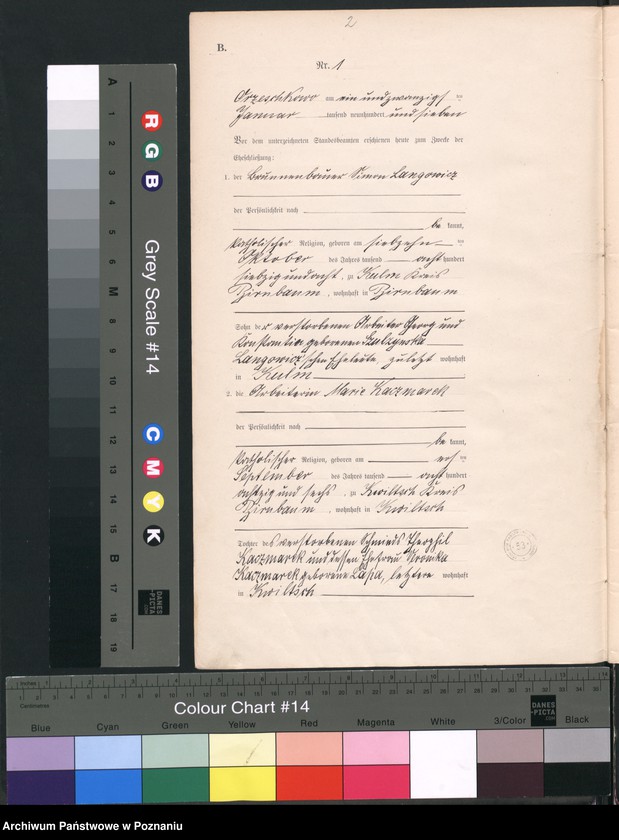 2
B.
Nr. 1
Orzeschkowo am ein und zwanzigsten
Januar tausend neunhundert und sieben
Vor dem unterzeichneten Standesbeamten erschienen heute zum Zwecke der
Eheschließung:
1. der Brunnenbauer Simon Langowicz
der Persönlichkeit nach
be kannt,
katholischer Religion, geboren am siebzehn ten
Oktober des Jahres tausend acht hundert
siebzig und acht, zu Kulm Kreis
Birnbaum, wohnhaft in Birnbaum
Sohn der verstorbenen Arbeiter Georg und
Konstantia geborenen
Langowicz'schen Eheleute zuletzt wohnhaft
in Kulm
2. die Arbeiterin Marie Kaczmarek
der Persönlichkeit nach
be kannt,
katholischer Religion, geboren am ers ten
September des Jahres tausend acht hundert
achtzig und sechs, zu Kwiltsch Kreis
Birnbaum, wohnhaft in Kwiltsch
Tochter des verstorbenen Schmieds Theophil
Kaczmarek und dessen Ehefrau
Kaczmarek geborene, letztere wohnhaft
in Kwiltsch
53
Grey Scale #14
R G B
C M Y K
A 1 2 3 4 5 6 M 8 9 10 11 12 13 14 15 B 17 18 19
DANES-PICTA.COM
Inches
Centimetres
Colour Chart #14
DANES-PICTA.COM
Blue Cyan Green Yellow Red Magenta White 3/Color Black
Archiwum Państwowe w Poznaniu